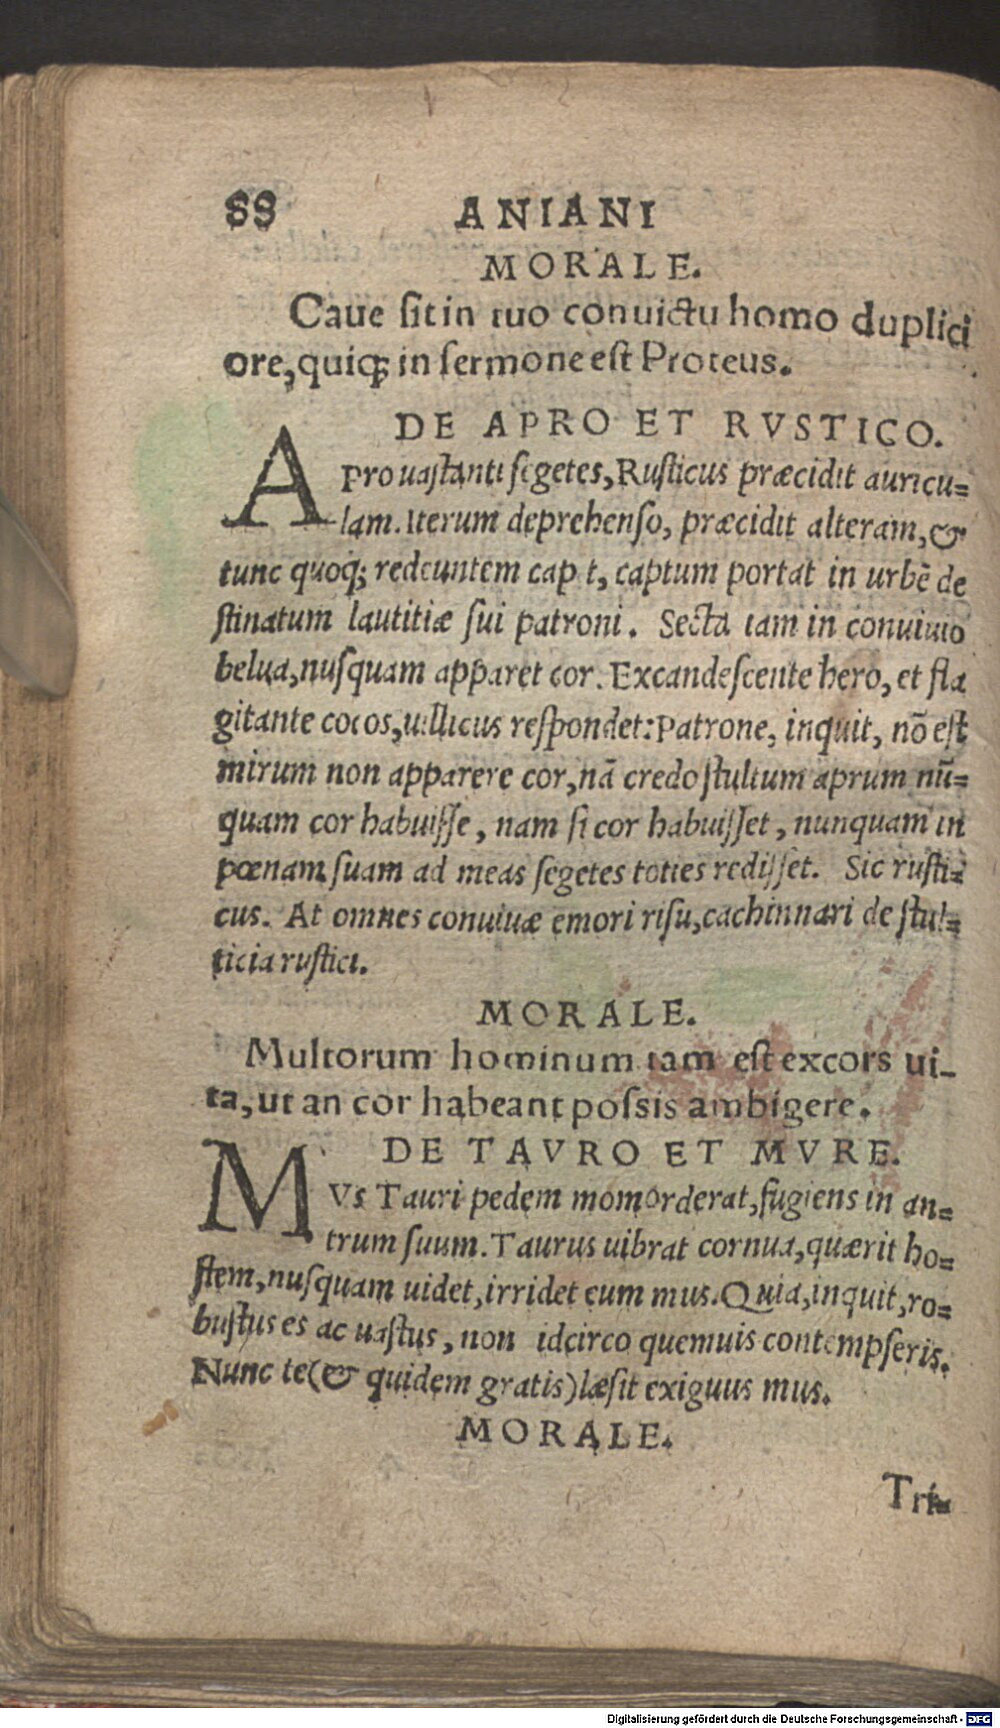 88 ANIANI
MORALE.
Caue sit in tuo conuictu homo duplici
ore, quiq; in sermone est Proteus.
DE APRO ET RVSTICO.
APro uastanti segetes, Rusticus præcidit auricu=
lam. Iterum deprehenso, præcidit alteram, &
tunc quoq; redeuntem cap t, captum portat in urbē de
stinatum lautitiæ sui patroni. Secta iam in conuiuio
belua, nusquam apparet cor. Excandescente hero, et fla
gitante cocos, uillicus respondet: Patrone, inquit, nō est
mirum non apparere cor, nā credo stultum aprum nū=
quam cor habuisse, nam si cor habuisset, nunquam in
pœnam suam ad meas segetes toties redisset. Sic rusti=
cus. At omnes conuiuæ emori risu, cachinnari de stul=
ticia rustici.
MORALE.
Multorum hominum tam est excors ui-
ta, ut an cor habeant possis ambigere.
DE TAVRO ET MVRE.
MVs Tauri pedem momorderat, fugiens in an=
trum suum. Taurus uibrat cornua, quærit ho=
stem, nusquam uidet, irridet eum mus. Quia, inquit, ro=
bustus es ac uastus, non idcirco quemuis contempseris.
Nunc te (& quidem gratis) læsit exiguus mus.
MORALE.
Tri=
Digitalisierung gefördert durch die Deutsche Forschungsgemeinschaft - DFG